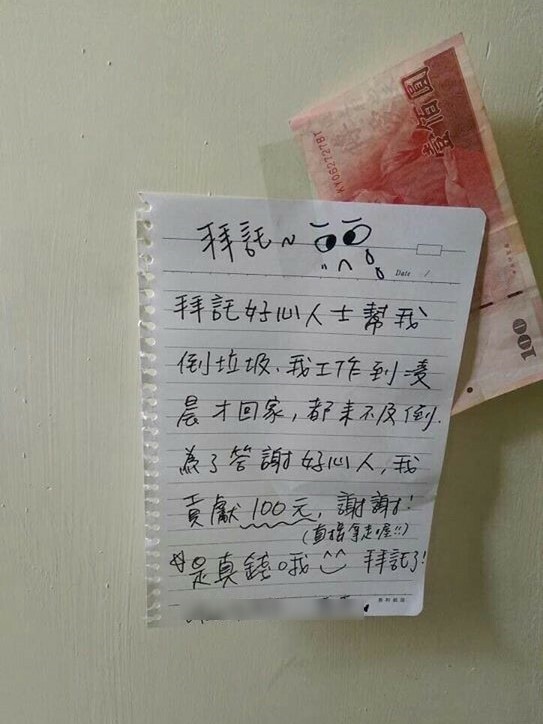 壹佰圓
KY062727BT
100
拜託~
Date /
拜託好心人士幫我
倒垃圾、我工作到凌
晨才回家，都來不及倒.
為了答謝好心人，我
貢獻100元，謝謝!
(直接拿走喔!!)
☆是真錢哦^^ 拜託了!